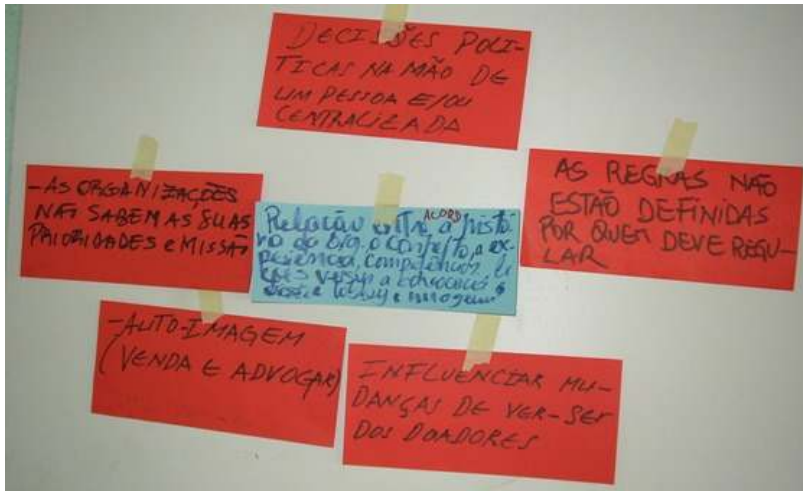 DECISÕES POLI-
TICAS NA MÃO DE
UM PESSOA E/OU
CENTRALIZADA
-AS ORGANIZAÇÕES
NÃO SABEM AS SUAS
PRIORIDADES e MISSÃO
ACORD
Relação entre a histó
do org, o contexto, a ex-
periência, competências,
versus a
e imagem
AS REGRAS NÃO
ESTÃO DEFINIDAS
POR QUEM DEVE REGU-
LAR
-AUTO-IMAGEM
(VENDA E ADVOGAR)
INFLUENCIAR MU-
DANÇAS DE VER-SER
DOS DOADORES